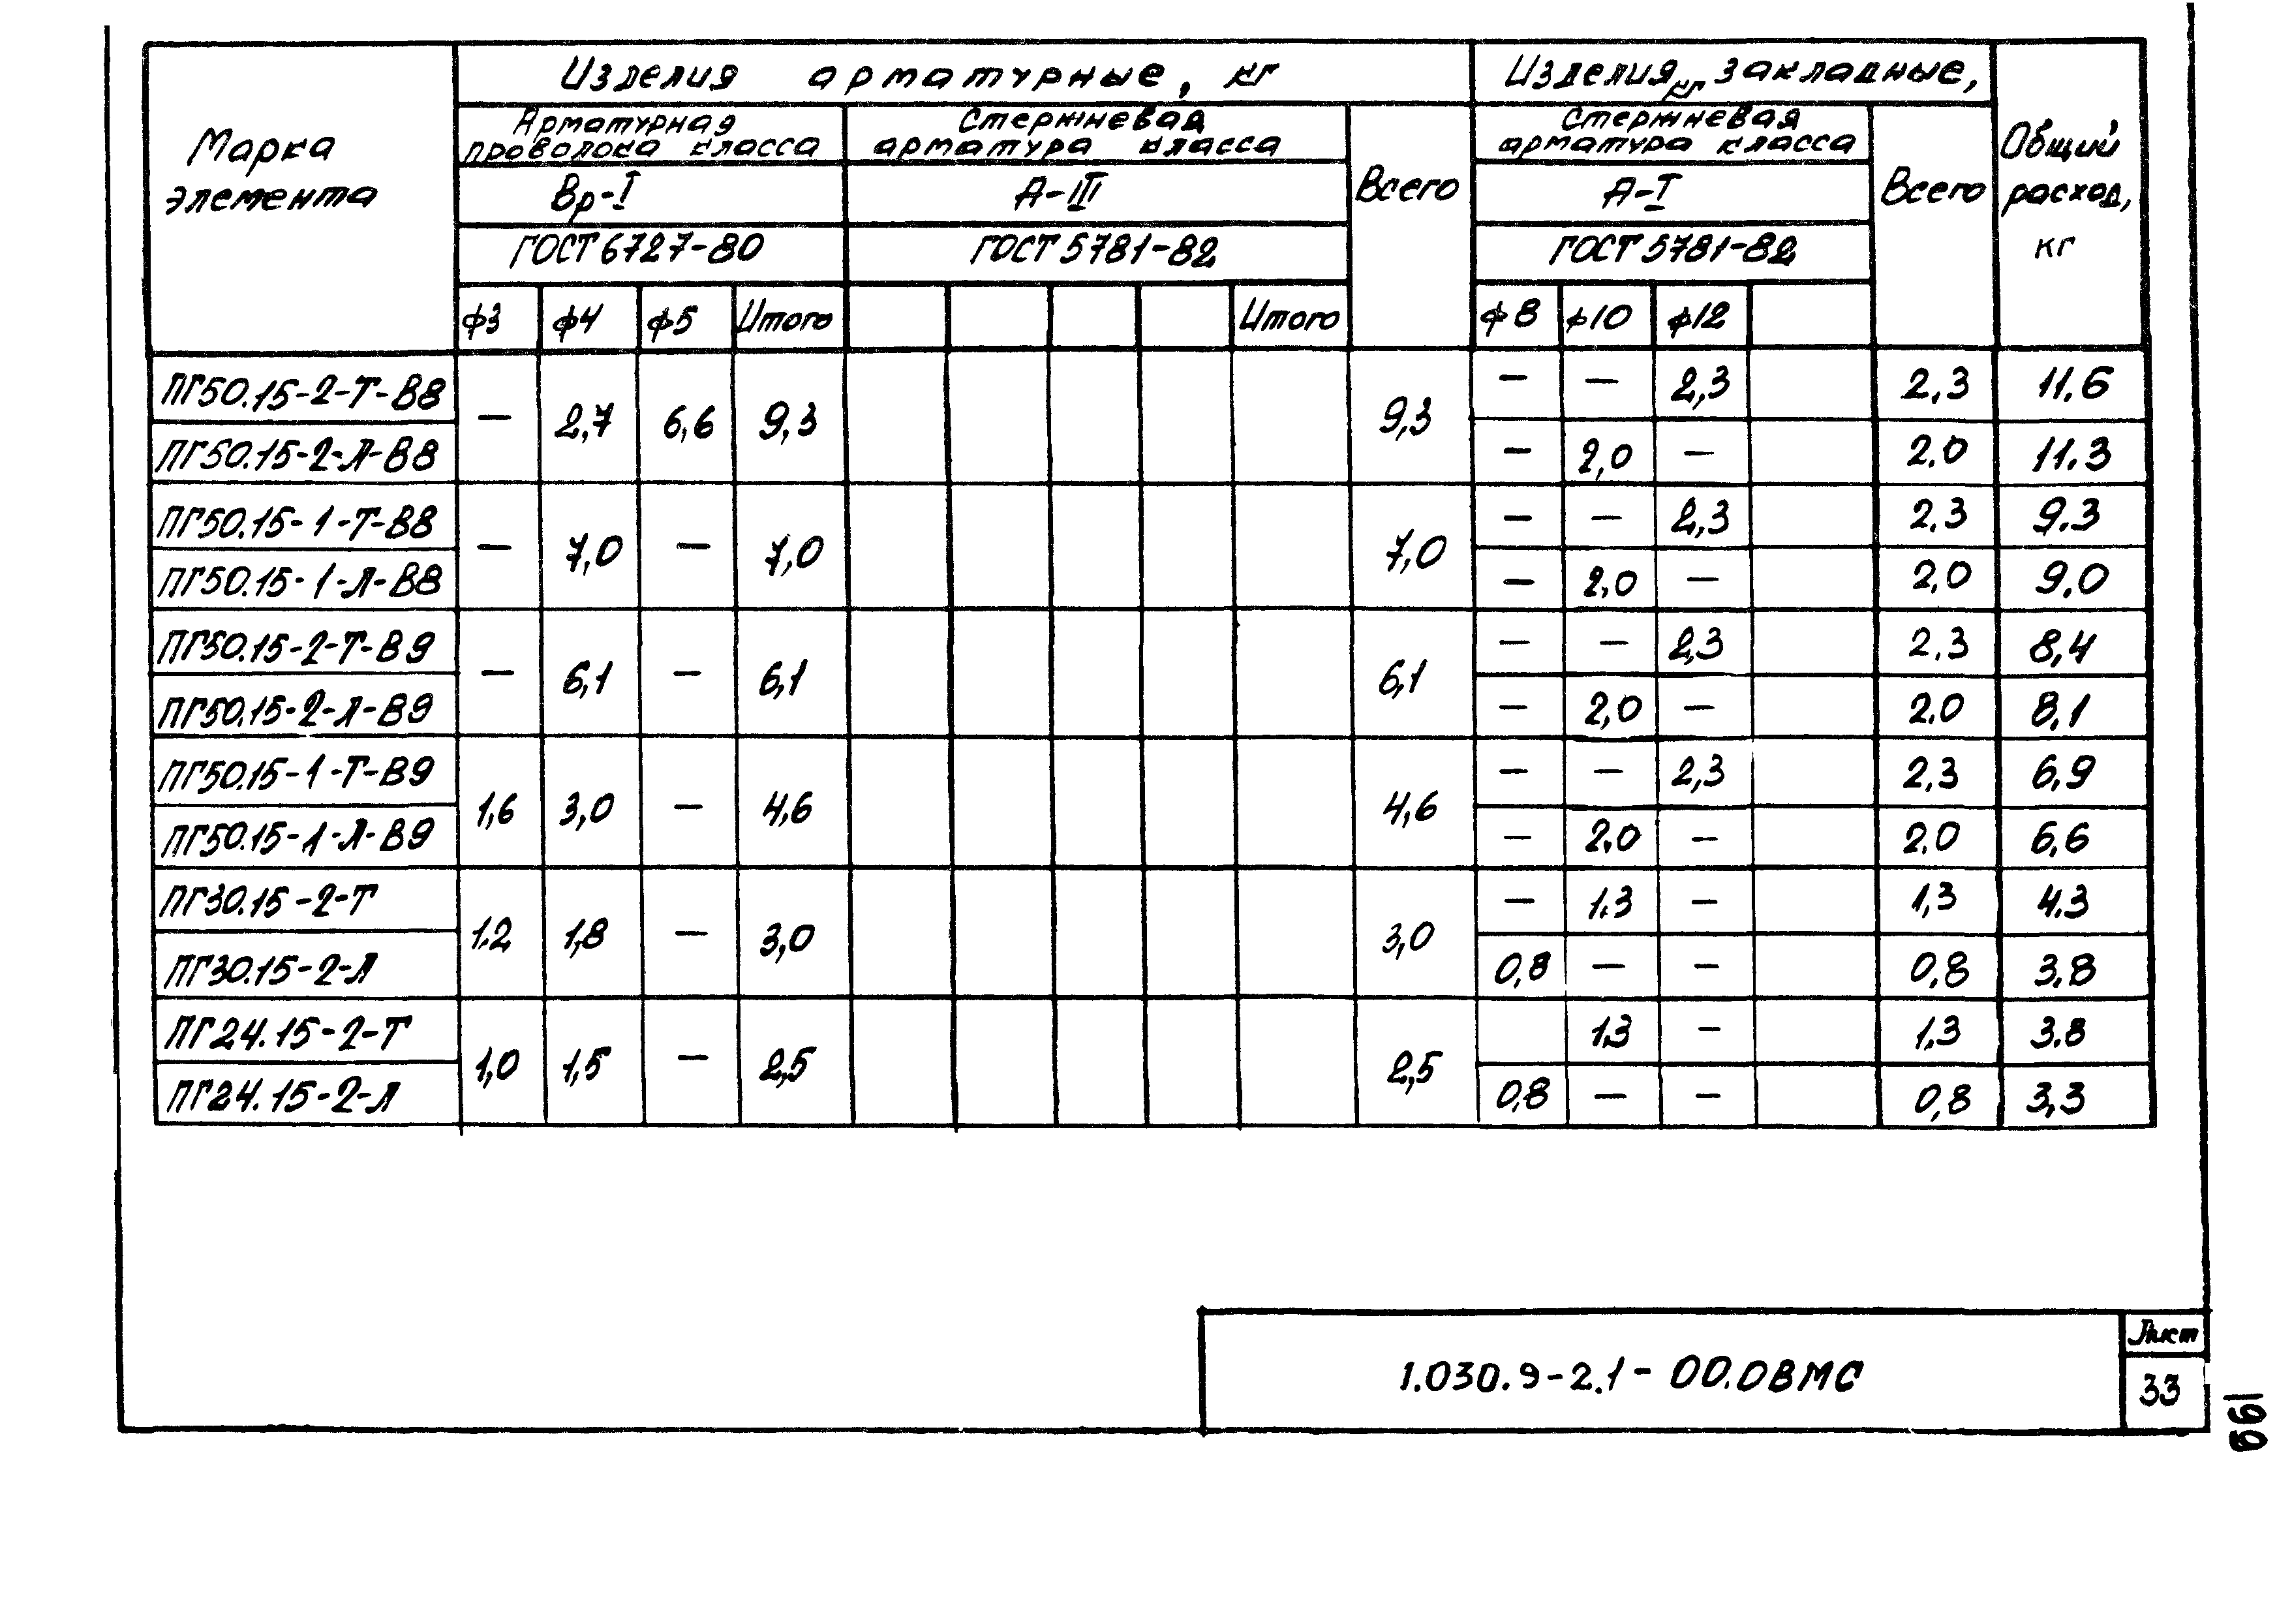 Марка элемента
Изделия арматурные, кг
Изделия закладные, кг
Общий расход, кг
Арматурная проволока класса
Стержневая арматура класса
Всего
Стержневая арматура класса
Всего
Вр-I
А-III
А-I
ГОСТ 6727-80
ГОСТ 5781-82
ГОСТ 5781-82
ф3 ф4 ф5 Итого Итого ф8 ф10 ф12
ПГ50.15-2-Т-В8 — 2,7 6,6 9,3 9,3 — — 2,3 2,3 11.6
ПГ50.15-2-Л-В8 — 2,0 — 2.0 11.3
ПГ50.15-1-Т-В8 — 7,0 — 7,0 7,0 — — 2,3 2,3 9.3
ПГ50.15-1-Л-В8 — 2,0 — 2,0 9,0
ПГ50.15-2-Т-В9 — 6,1 — 6,1 6,1 — — 2,3 2,3 8,4
ПГ50.15-2-Л-В9 — 2,0 — 2.0 8,1
ПГ50.15-1-Т-В9 1,6 3,0 — 4,6 4,6 — — 2,3 2,3 6,9
ПГ50.15-1-Л-В9 — 2.0 — 2.0 6,6
ПГ30.15-2-Т 1.2 1,8 — 3,0 3,0 — 1.3 — 1,3 4.3
ПГ30.15-2-Л 0,8 — — 0,8 3,8
ПГ24.15-2-Т 1,0 1,5 — 2,5 2,5 1.3 — 1,3 3.8
ПГ24.15-2-Л 0,8 — — 0,8 3,3
1.030.9-2.1-00.0ВМС
Лист
33
199